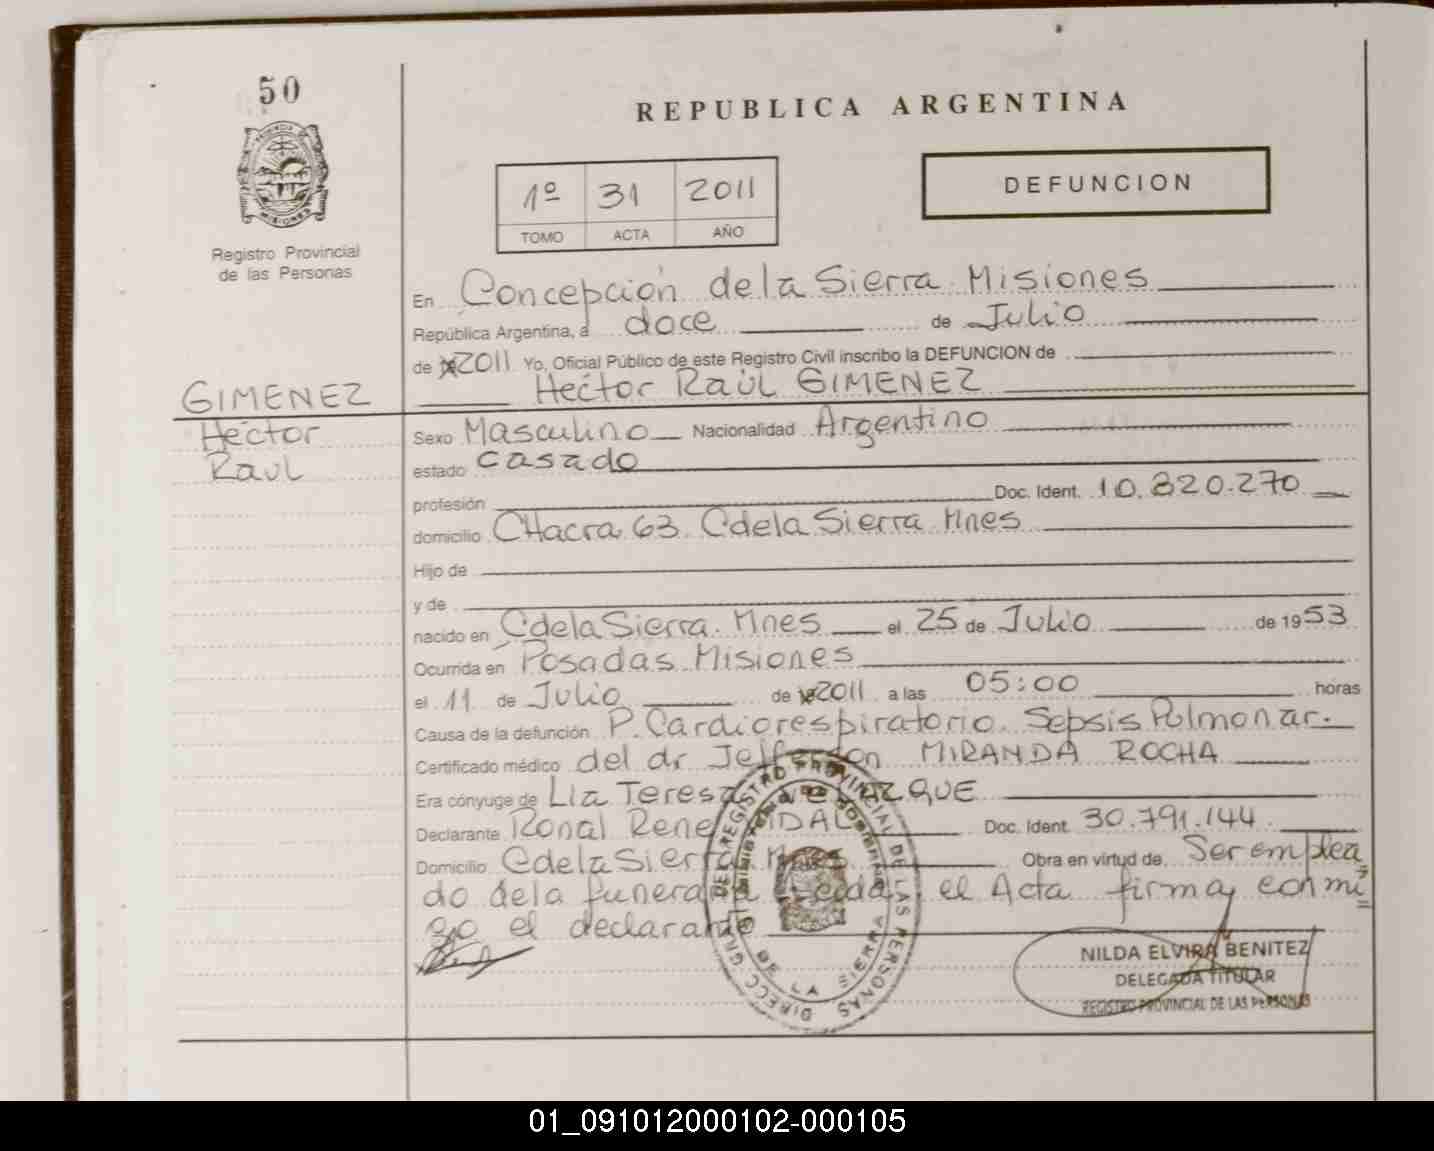 50
REPUBLICA ARGENTINA
1º 31 2011
TOMO ACTA AÑO
DEFUNCION
Registro Provincial
de las Personas
En Concepción de la Sierra Misiones
República Argentina, a doce de Julio
de 2011 Yo, Oficial Público de este Registro Civil inscribo la DEFUNCION de
GIMENEZ Héctor Raúl GIMENEZ
Héctor
Raul
Sexo Masculino Nacionalidad Argentino
estado casado
profesión Doc. Ident. 10.820.270
domicilio CHacra 63 Cdela Sierra Mnes
Hijo de
y de
nacido en Cdela Sierra. Mnes el 25 de Julio de 1953
Ocurrida en Posadas Misiones
el 11 de Julio de 2011 a las 05:00 horas
Causa de la defunción P. Cardiorespiratorio. Sepsis Pulmonar.
Certificado médico del dr Jefferson MIRANDA ROCHA
Era cónyuge de Lia Teresa
Declarante Ronal Rene VIDAL Doc. Ident. 30.791.144
Domicilio Cdela Sierra Mnes Obra en virtud de Ser emplea
do dela funeraria Leida el Acta firma conmi
go el declarante
NILDA ELVIRA BENITEZ
DELEGADA TITULAR
REGISTRO PROVINCIAL DE LAS PERSONAS
01_091012000102-000105